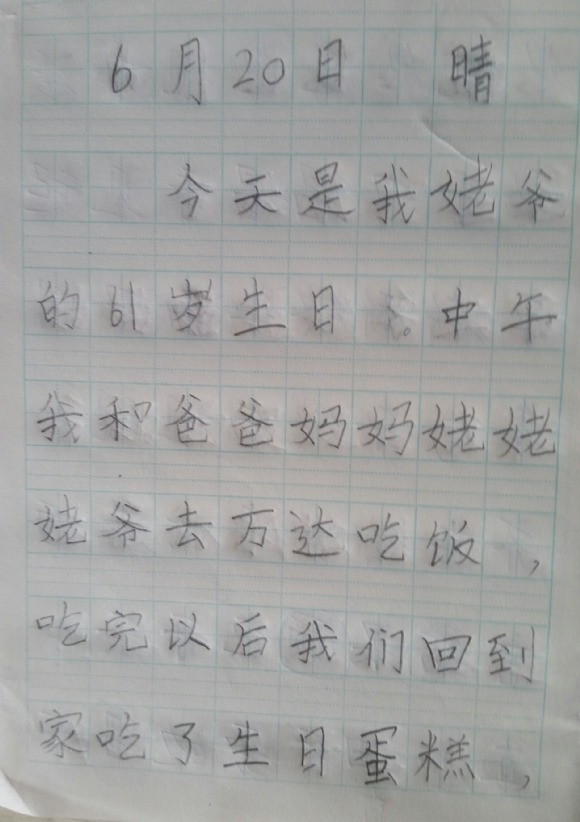 6月20日 晴
今天是我姥爷
的61岁生日。中午
我和爸爸妈妈姥姥
姥爷去万达吃饭,
吃完以后我们回到
家吃了生日蛋糕,